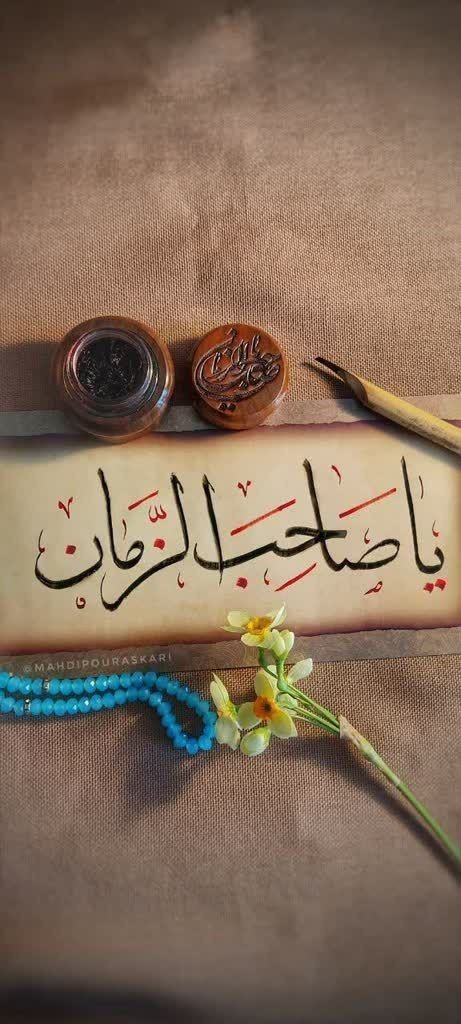 یا صاحِبَ الزَّمان
@MAHDIPOURASKARI